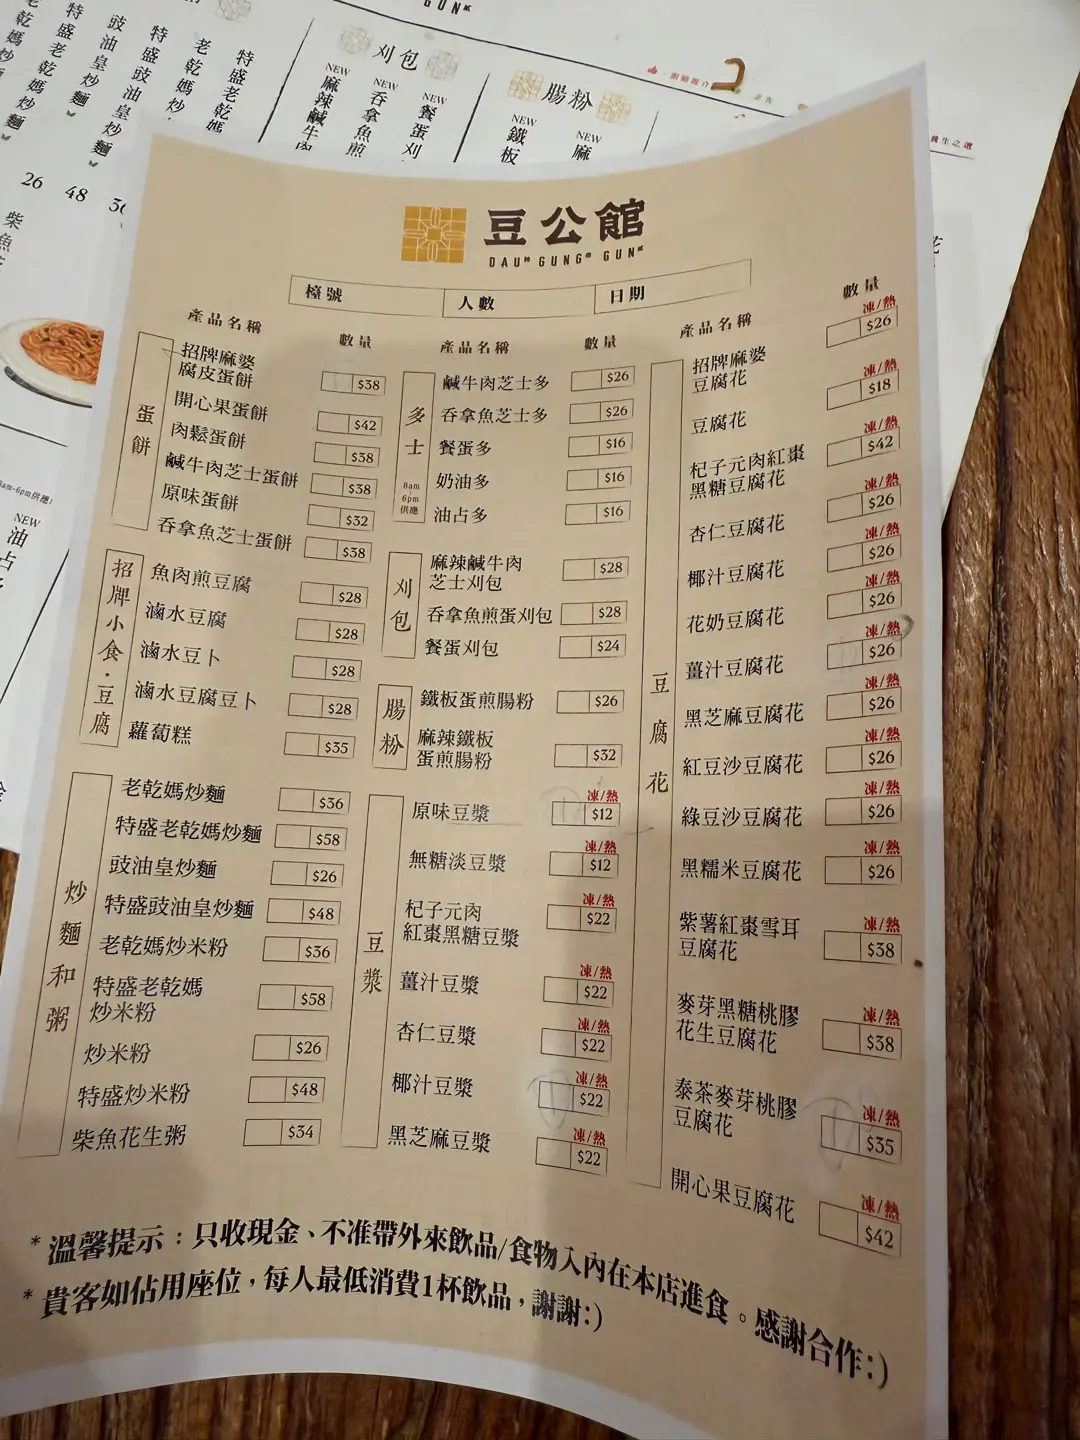 豆公館
DAU GUNG GUN
檯號
人數
日期
產品名稱
數量
蛋餅
招牌麻婆
腐皮蛋餅 $38
開心果蛋餅 $42
肉鬆蛋餅 $38
鹹牛肉芝士蛋餅 $38
原味蛋餅 $32
吞拿魚芝士蛋餅 $38
招牌小食·豆腐
魚肉煎豆腐 $28
滷水豆腐 $28
滷水豆卜 $28
滷水豆腐豆卜 $28
蘿蔔糕 $35
炒麵和粥
老乾媽炒麵 $36
特盛老乾媽炒麵 $58
豉油皇炒麵 $26
特盛豉油皇炒麵 $48
老乾媽炒米粉 $36
特盛老乾媽
炒米粉 $58
炒米粉 $26
特盛炒米粉 $48
柴魚花生粥 $34
產品名稱
數量
多士
8am
6pm
供應
鹹牛肉芝士多 $26
吞拿魚芝士多 $26
餐蛋多 $16
奶油多 $16
油占多 $16
刈包
麻辣鹹牛肉
芝士刈包 $28
吞拿魚煎蛋刈包 $28
餐蛋刈包 $24
腸粉
鐵板蛋煎腸粉 $26
麻辣鐵板
蛋煎腸粉 $32
豆漿
原味豆漿 凍/熱 $12
無糖淡豆漿 凍/熱 $12
杞子元肉
紅棗黑糖豆漿 凍/熱 $22
薑汁豆漿 凍/熱 $22
杏仁豆漿 凍/熱 $22
椰汁豆漿 凍/熱 $22
黑芝麻豆漿 凍/熱 $22
產品名稱
數量
豆腐花
招牌麻婆
豆腐花 凍/熱 $26
豆腐花 凍/熱 $18
杞子元肉紅棗
黑糖豆腐花 凍/熱 $42
杏仁豆腐花 凍/熱 $26
椰汁豆腐花 凍/熱 $26
花奶豆腐花 凍/熱 $26
薑汁豆腐花 凍/熱 $26
黑芝麻豆腐花 凍/熱 $26
紅豆沙豆腐花 凍/熱 $26
綠豆沙豆腐花 凍/熱 $26
黑糯米豆腐花 凍/熱 $26
紫薯紅棗雪耳
豆腐花 凍/熱 $38
麥芽黑糖桃膠
花生豆腐花 凍/熱 $38
泰茶麥芽桃膠
豆腐花 凍/熱 $35
開心果豆腐花 凍/熱 $42
*溫馨提示：只收現金、不准帶外來飲品/食物入內在本店進食。感謝合作:)
*貴客如佔用座位，每人最低消費1杯飲品，謝謝:)
GUN
乾媽炒麵
特盛老乾媽炒麵
豉油皇炒麵
特盛豉油皇炒麵
老乾媽炒
特盛老乾媽
26
48
柴魚
刈包
NEW
麻辣鹹牛肉
NEW
吞拿魚煎
NEW
餐蛋刈
腸粉
NEW
鐵板
NEW
麻
養生之選
8am-6pm供應
NEW
油占